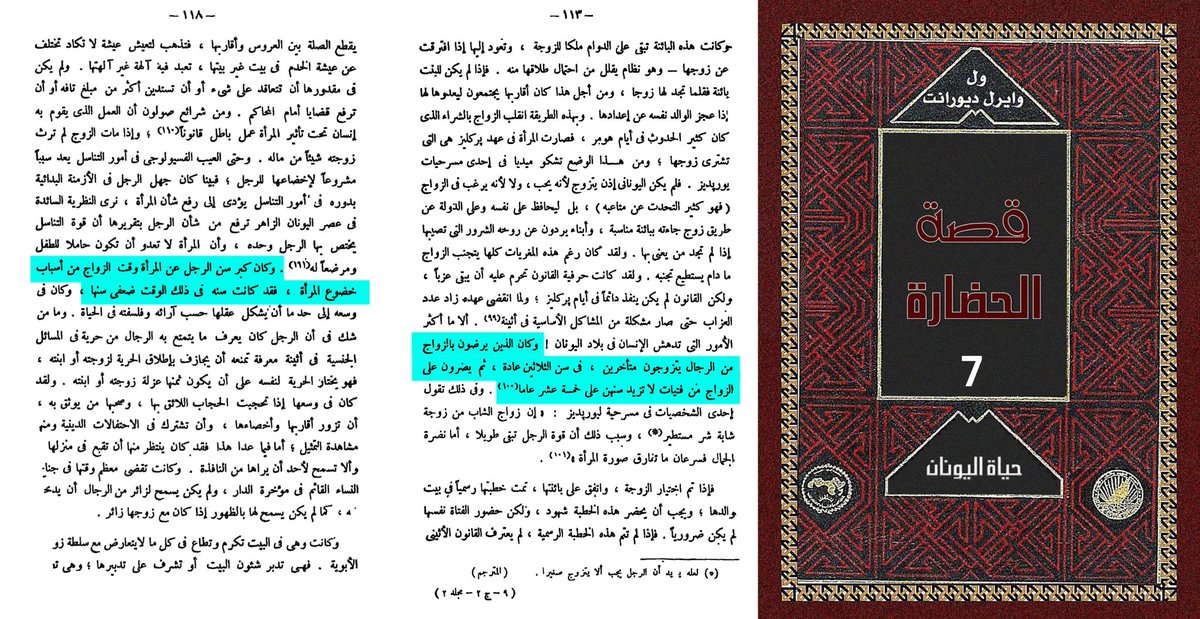 ول
وايرل ديورانت
قصة
الحضارة
7
حياة اليونان
— ١١٣ —
وكانت هذه البائنة تبقى على الدوام ملكا للزوجة ، وتعود إليها إذا افترقت
عن زوجها — وهو نظام يقلل من احتمال طلاقها منه . فإذا لم يكن للبنت
بائنة فقلما تجد لها زوجا ، ومن أجل هذا كان أقاربها يجتمعون ليعدوها لها
إذا عجز الوالد نفسه عن إعدادها . وبهذه الطريقة انقلب الزواج بالشراء الذى
كان كثير الحدوث فى أيام هومر ، فصارت المرأة فى عهد پركليز هى التى
تشترى زوجها ؛ ومن هــذا الوضع تشكو ميديا فى إحدى مسرحيات
يورپديز . فلم يكن اليونانى إذن يتزوج لأنه يحب ، ولا لأنه يرغب فى الزواج
( فهو كثير التحدث عن متاعبه ) ، بل ليحافظ على نفسه وعلى الدولة عن
طريق زوج جاءته ببائنة مناسبة ، وأبناء يردون عن روحه الشرور التى تصيبها
إذا لم تجد من يعنى بها . ولقد كان رغم هذه المغريات كلها يتجنب الزواج
ما دام يستطيع تجنبه . ولقد كانت حرفية القانون تحرم عليه أن يبقى عزباً ،
ولكن القانون لم يكن ينفذ دائماً فى أيام پركليز ؛ ولما انقضى عهده زاد عدد
العزاب حتى صار مشكلة من المشاكل الأساسية فى أثينة(٩٩) . ألا ما أكثر
الأمور التى تدهش الإنسان فى بلاد اليونان ! وكان الذين يرضون بالزواج
من الرجال يتزوجون متأخرين ، فى سن الثلاثين عادة ، ثم يصرون على
الزواج من فتيات لا تزيد سنهن على خمسة عشر عاما(١٠٠) . وفى ذلك تقول
إحدى الشخصيات فى مسرحية ليورپديز : « إن زواج الشاب من زوجة
شابة شر مستطير(*) ، وسبب ذلك أن قوة الرجل تبقى طويلا ، أما نضرة
الجمال فسرعان ما تفارق صورة المرأة »(١٠١) .
فإذا تم اختيار الزوجة ، واتفق على بائنتها ، تمت خطبتها رسمياً فى بيت
والدها ؛ ويجب أن يحضر هذه الخطبة شهود ، ولكن حضور الفتاة نفسها
لم يكن ضرورياً . فإذا لم تتم هذه الخطبة الرسمية ، لم يعترف القانون الأثينى
(*) لعله يريد أن الرجل يجب ألا يتزوج صغيرا . (المترجم)
(٩ – ج ٢ – مجلد ٢)
— ١١٨ —
يقطع الصلة بين العروس وأقاربها ، فتذهب لتعيش عيشة لا تكاد تختلف
عن عيشة الخدم فى بيت غير بيتها ، تعبد فيه آلهة غير آلهتها . ولم يكن
فى مقدورها أن تتعاقد على شىء أو أن تستدين أكثر من مبلغ تافه أو أن
ترفع قضايا أمام المحاكم . ومن شرائع صولون أن العمل الذى يقوم به
إنسان تحت تأثير المرأة عمل باطل قانوناً(١١٠) ؛ وإذا مات الزوج لم ترث
زوجته شيئاً من ماله . وحتى العيب الفسيولوجى فى أمور التناسل يعد سبباً
مشروعاً لإخضاعها للرجل ؛ فبينا كان جهل الرجل فى الأزمنة البدائية
بدوره فى أمور التناسل يؤدى إلى رفع شأن المرأة ، نرى النظرية السائدة
فى عصر اليونان الزاهر ترفع من شأن الرجل بتقريرها أن قوة التناسل
يختص بها الرجل وحده ، وأن المرأة لا تعدو أن تكون حاملا للطفل
ومرضعاً له(١١١) . وكان كبر سن الرجل عن المرأة وقت الزواج من أسباب
خضوع المرأة ، فقد كانت سنه فى ذلك الوقت ضعفى سنها ، وكان فى
وسعه إلى حد ما أن يشكل عقلها حسب آرائه وفلسفته فى الحياة . وما من
شك فى أن الرجل كان يعرف ما يتمتع به الرجال من حرية فى المسائل
الجنسية فى أثينة معرفة تمنعه أن يجازف بإطلاق الحرية لزوجته أو ابنته ،
فهو يختار الحرية لنفسه على أن يكون ثمنها عزلة زوجته أو ابنته . ولقد
كان فى وسعها إذا تحجبت الحجاب اللائق بها ، وصحبها من يوثق به ،
أن تزور أقاربها وأخصاءها ، وأن تشترك فى الاحتفالات الدينية ومنها
مشاهدة التمثيل ؛ أما فيما عدا هذا فقد كان ينتظر منها أن تقبع فى منزلها
وألا تسمح لأحد أن يراها من النافذة . وكانت تقضى معظم وقتها فى جناح
النساء القائم فى مؤخرة الدار ، ولم يكن يسمح لزائر من الرجال أن
، كما لم يكن يسمح لها بالظهور إذا كان مع زوجها زائر .
وكانت وهى فى البيت تكرم وتطاع فى كل ما لا يتعارض مع سلطة زو
الأبوية . فهى تدبر شئون البيت أو تشرف على تدبيرها ؛ وهى